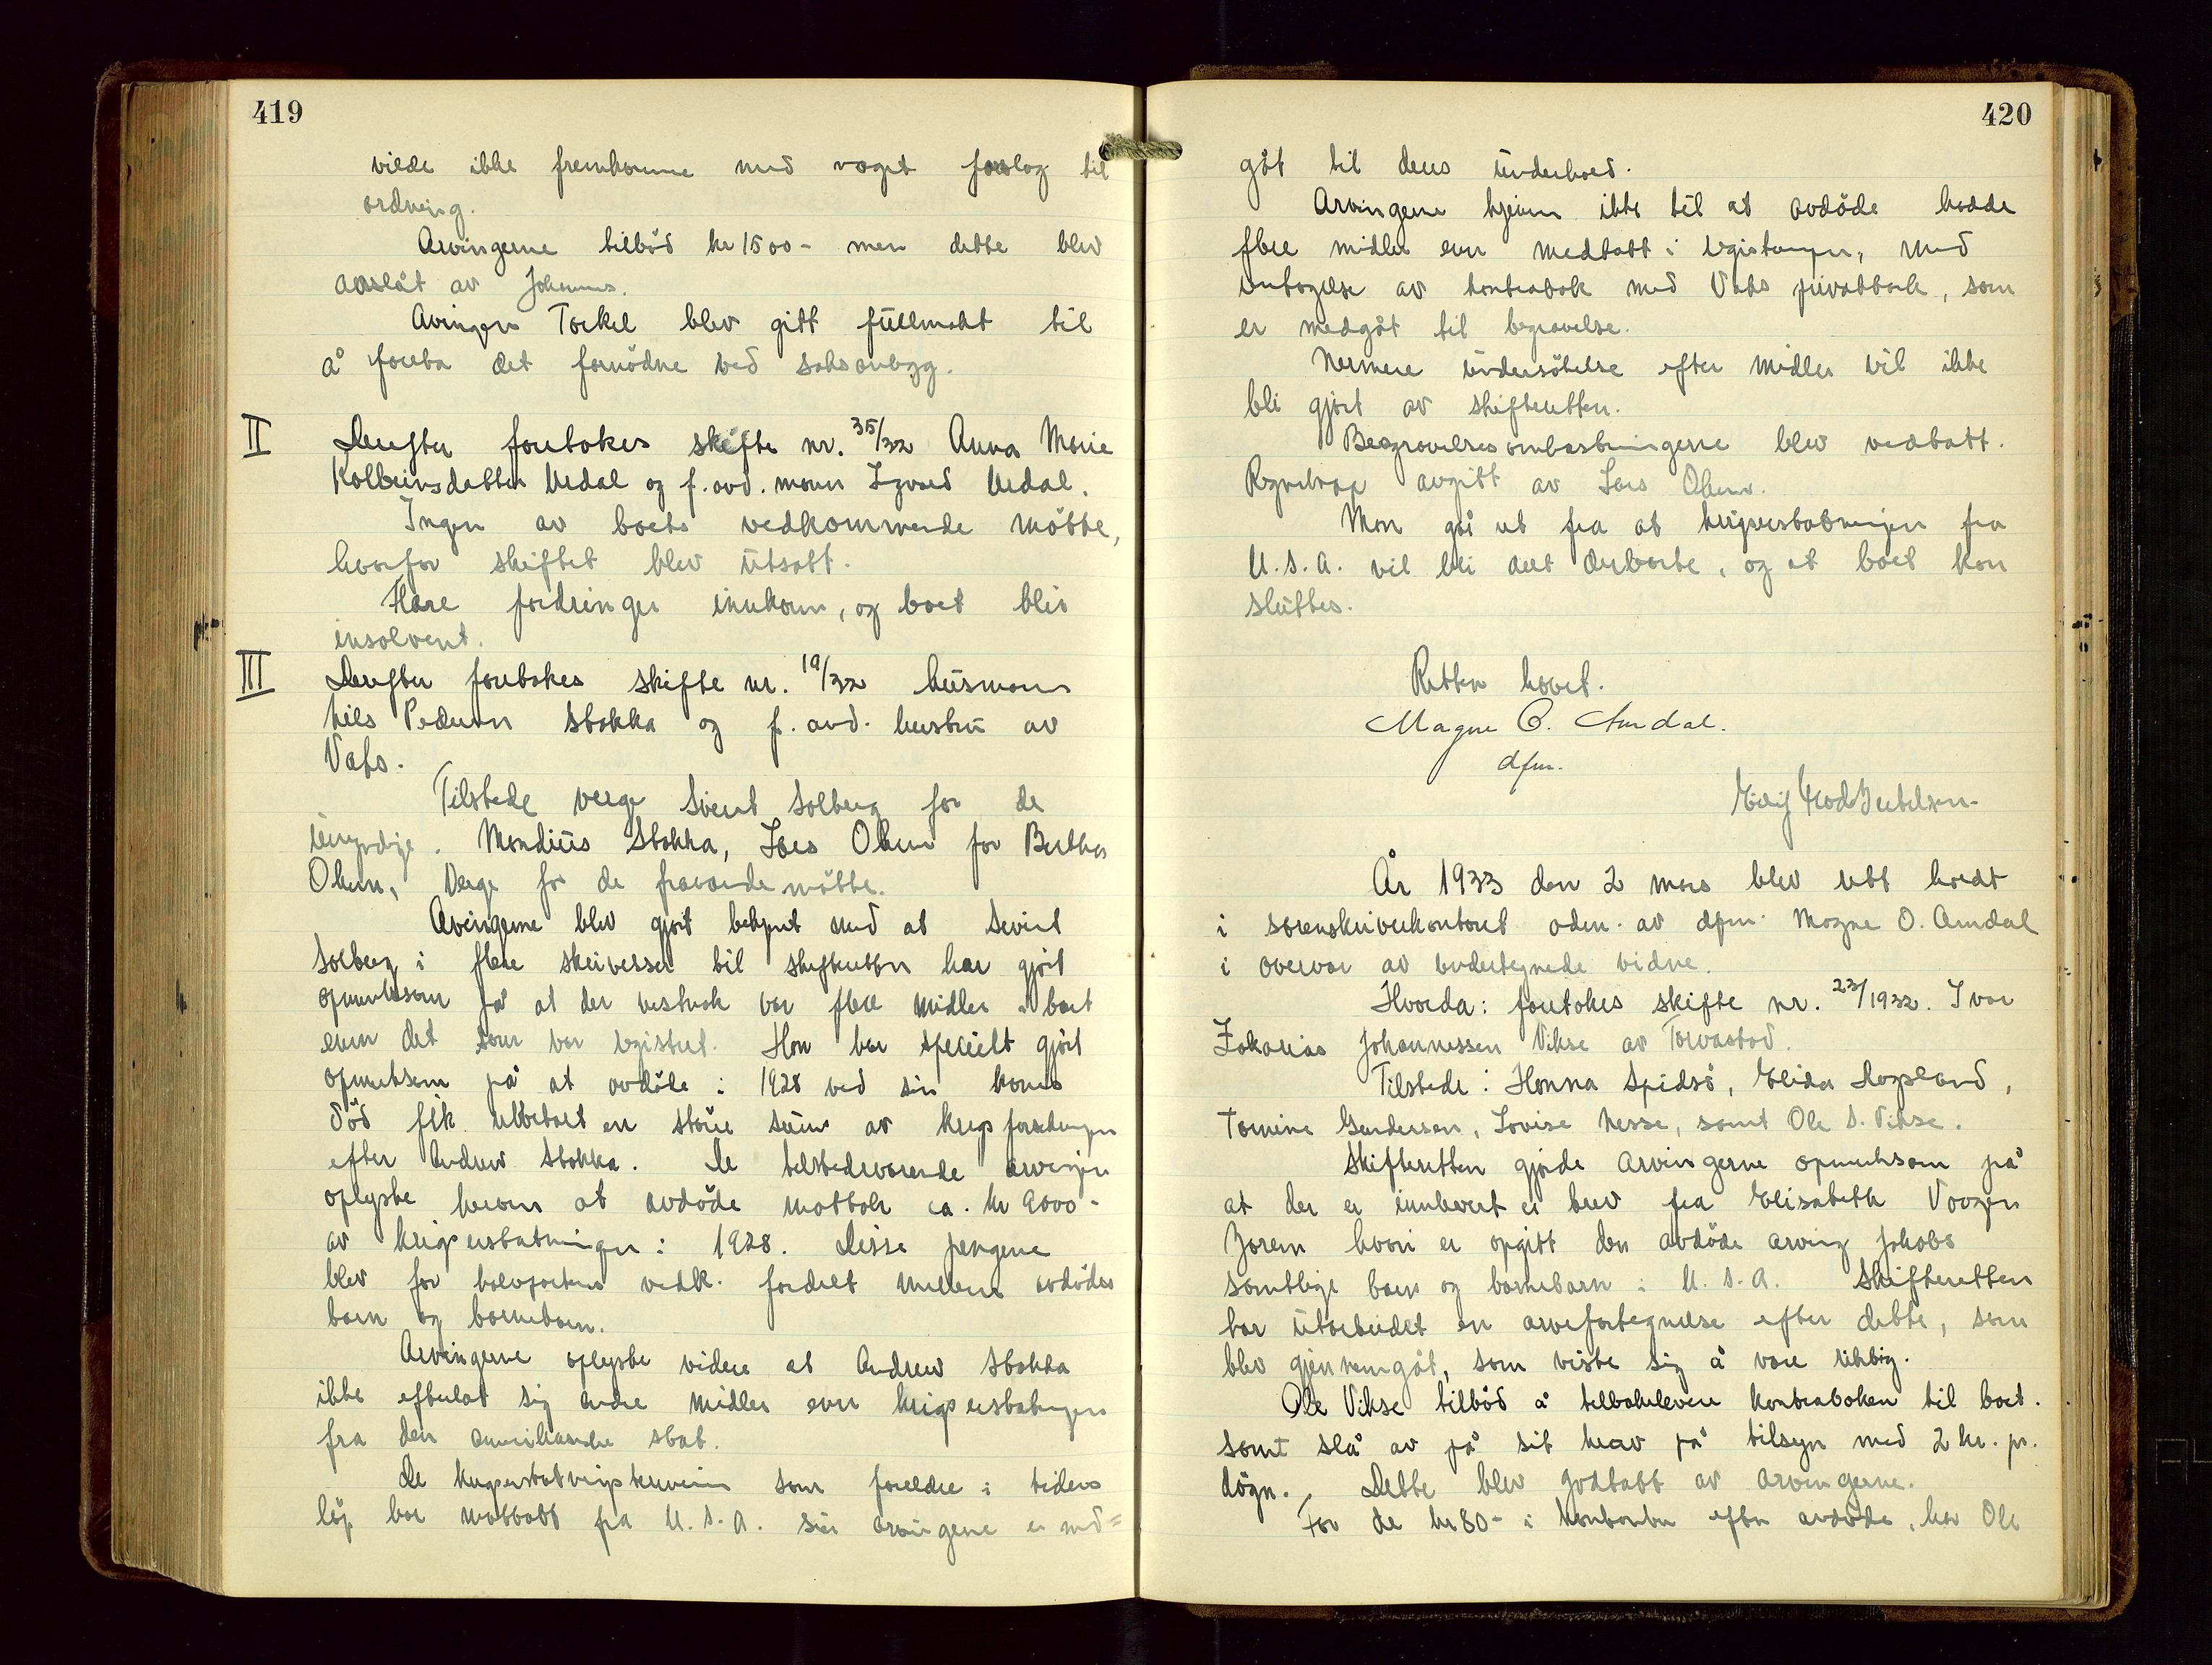 419
vilde ikke fremkomme med noget forslag til
ordning.
Arvingerne tilbød kr 1500- men dette blev
avslåt av Johannes.
Arvingen Torkel blev gitt fullmakt til
å foreta det fornødne ved saksanlegg.
II Derefter foretokes skifte nr. 35/32 Anna Marie
Kolbeinsdatter Uedal og f. avd. mann Ingvald Uedal.
Ingen av boets vedkommende møtte,
hvorfor skiftet blev utsatt.
Flere fordringer innkom, og boet blir
insolvent.
III Derefter foretokes skifte nr. 19/32 husmann
Nils Pedersen Stakka og f. avd. hustru av
Vats.
Tilstede verge Sivert Solberg for de
umyndige. Mondius Stakka, Lars Olsen for Bertha
Olsen, Verge for de fraværende møtte.
Arvingerne blev gjort bekjent med at Sivert
Solberg i flere skrivelser til skifteretten har gjort
opmerksom på at der vistnok var flere midler i boet
enn det som var registrert. Han har specielt gjort
opmerksom på at avdøde i 1928 ved sin kones
død fik utbetalt en større sum av krigs
efter Andrew Stakka. De tilstedeværende arvinger
oplyste herom at avdøde mottok ca. kr 9000-
av krigserstatningen i 1928. Disse pengene
blev for halvpartens vedk. fordelt mellem avdødes
barn og barnebarn.
Arvingerne oplyste videre at Andrew Stakka
ikke efterlot sig andre midler enn krigserstatningen
fra den amerikanske stat.
De som foreldre i tidens
løp har mottatt fra U.S.A. sier arvingerne er med=
420
gåt til deres underhold.
Arvingerne kjenner ikke til at avdøde hadde
flere midler enn medtatt i registeringen, med
undtagelse av kontrabok med Vats privatbank, som
er medgåt til begravelse.
Nermere undersøkelse efter midler vil ikke
bli gjort av skifteretten.
Begravelsesomkostningerne blev vedtatt.
Regnskap avgitt av Lars Olsen.
Man går ut fra at krigserstatningen fra
U.S.A. vil bli delt derborte, og at boet kan
sluttes.
Retten hævet.
Magne O. Amdal.
dfm.
År 1933 den 2 mars blev rett holdt
i sorenskriverkontoret adm. av dfm. Magne O. Amdal
i overvær av undertegnede vidne.
Hvorda: foretokes skifte nr. 23/1932. Ivar
Zakarias Johannessen Vikse av Torvastad.
Tilstede: Hanna Spidsø, Elida Aagsland,
Tomine Gundersen, Lovise Nesse, samt Ole S. Vikse.
Skifteretten gjorde arvingerne opmerksom på
at der er innlevert et brev fra Elisabeth Vaagen
hvori er opgitt den avdøde arving Jakobs
samtlige barn og barnebarn i U.S.A. Skifteretten
har utarbeidet en arvefortegnelse efter dette, som
blev gjennemgåt, som viste sig å være riktig.
Ole Vikse tilbød å tilbakelevere kontraboken til boet.
samt slå av på sit krav på tilsyn med 2 kr. pr.
døgn. Dette blev godtatt av arvingerne.
For de kr 80- i kontanter efter avdøde, har Ole